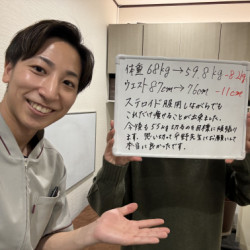 体重 68kg→59.8kg -8.2kg
ウエスト 87cm→76cm -11cm
ステロイド服用しながらでも
これだけ痩せることが出来ました。
今後も55kg切るのを目標に頑張り
ます。思い切って平野先生にお願いして
本当に良かったです。